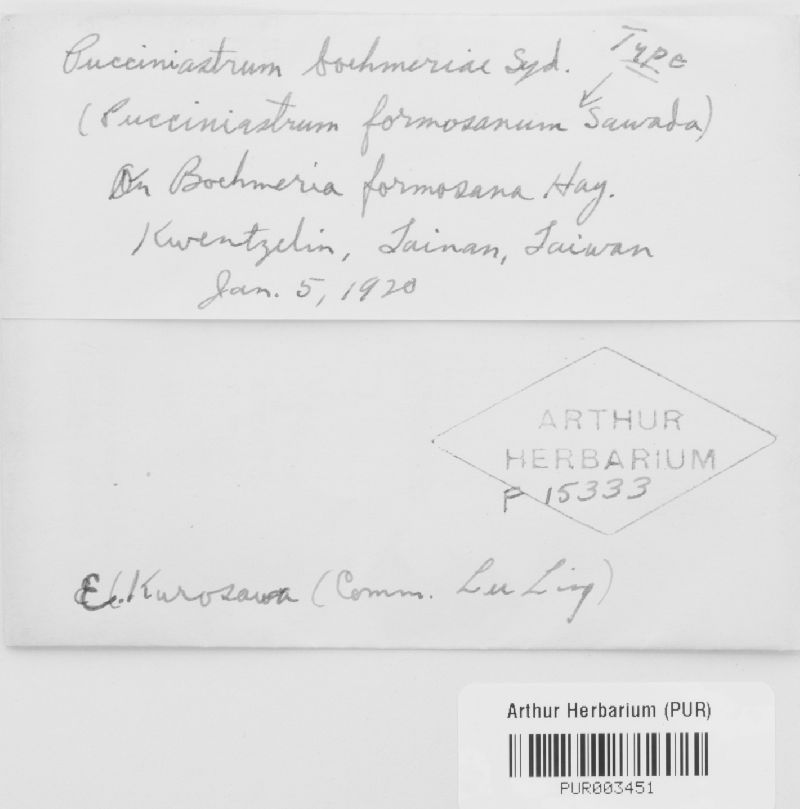 Pucciniastrum boehmeriae Syd. Type
(Pucciniastrum formosanum Sawada)
On Boehmeria formosana Hay.
Kwentzelin, Tainan, Taiwan
Jan. 5, 1920
ARTHUR
HERBARIUM
P 15333
E. Kurosawa (Comm. Lu Ling)
Arthur Herbarium (PUR)
PUR003451